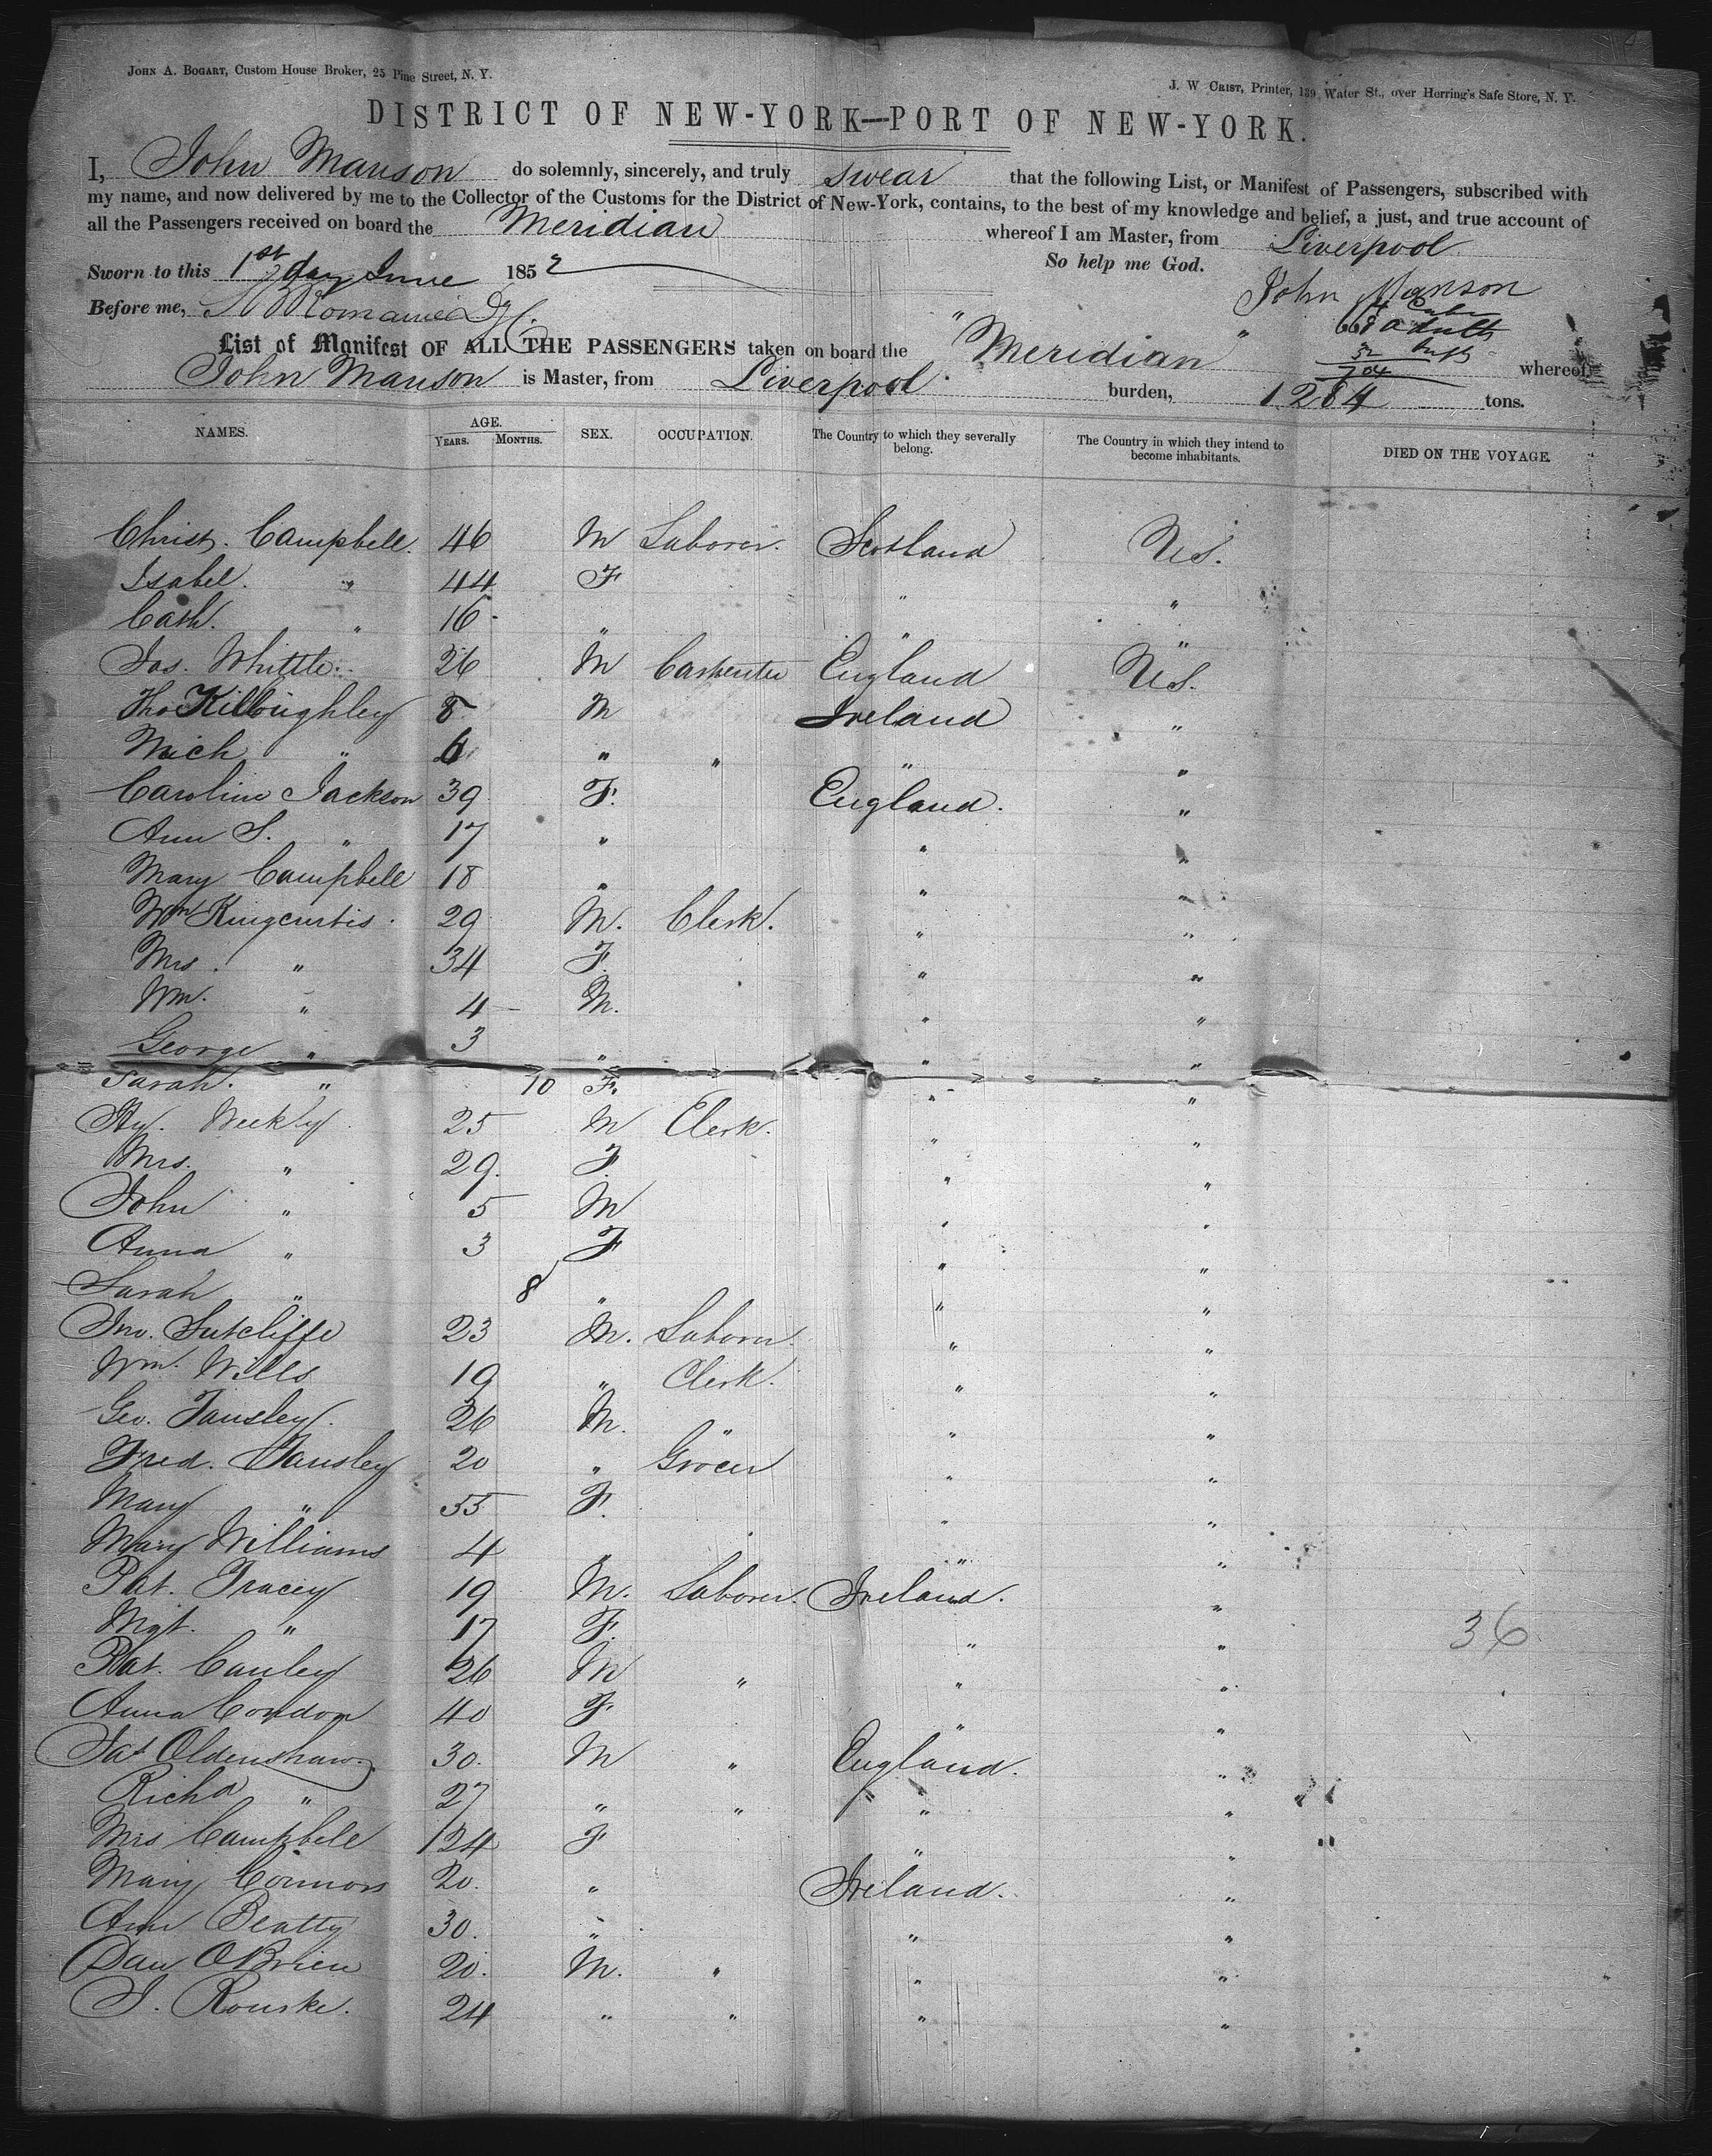 JOHN A. BOGART, Custom House Broker, 25 Pine Street, N. Y.
J. W CRIST, Printer, 139 Water St., over Herring's Safe Store, N. Y.
DISTRICT OF NEW-YORK—PORT OF NEW-YORK.
I, John Manson do solemnly, sincerely, and truly swear that the following List, or Manifest of Passengers, subscribed with
my name, and now delivered by me to the Collector of the Customs for the District of New-York, contains, to the best of my knowledge and belief, a just, and true account of
all the Passengers received on board the Meridian whereof I am Master, from Liverpool
Sworn to this 1st day June 1852 So help me God.
John Manson
Before me,
668 adults
32
704
List of Manifest OF ALL THE PASSENGERS taken on board the " Meridian " whereof
John Manson is Master, from Liverpool. burden, 1284 tons.
NAMES. AGE. YEARS. MONTHS. SEX. OCCUPATION. The Country to which they severally belong. The Country in which they intend to become inhabitants. DIED ON THE VOYAGE.
Christ. Campbell. 46 M Laborer. Scotland U.S.
Isabel. " 44 F " "
Cath. " 16 " " "
Jas. Whittle. 26 M Carpenter England U.S.
Tho Killoughley 8 M Ireland "
Mich " 6 " " " "
Caroline Jackson 39 F. England. "
Ann S. " 17 " " "
Mary Campbell 18 " " "
Wm Kingcurtis. 29 M. Clerk. " "
Mrs. " 34 F. " "
Wm. " 4 M. " "
George " 3 " " "
Sarah. " 10 F. " "
Hy. Weekly 25 M Clerk. " "
Mrs. " 29. F " "
John " 5 M " "
Anna " 3 F " "
Sarah " 8 " " "
Jno. Sutcliffe 23 M. Laborer " "
Wm. Wills 19 " Clerk. " "
Geo. Tansley. 26 M. " " "
Fred. Tansley 20 " Grocer " "
Mary " 55 F. " "
Mary Williams 4 " " "
Pat. Tracey 19 M. Laborer. Ireland. "
Mgt. " 17 F. " " 36
Pat. Cauley 26 M " " "
Anna Condon 40 F " "
Jas Oldenshaw. 30. M " England. "
Richd " 27 " " " "
Mrs Campbell 24 F " "
Mary Connors 20. " Ireland. "
Ann Beatty 30. " " "
Dan OBrien 20. M. " " "
J. Rourke. 24 " " " "